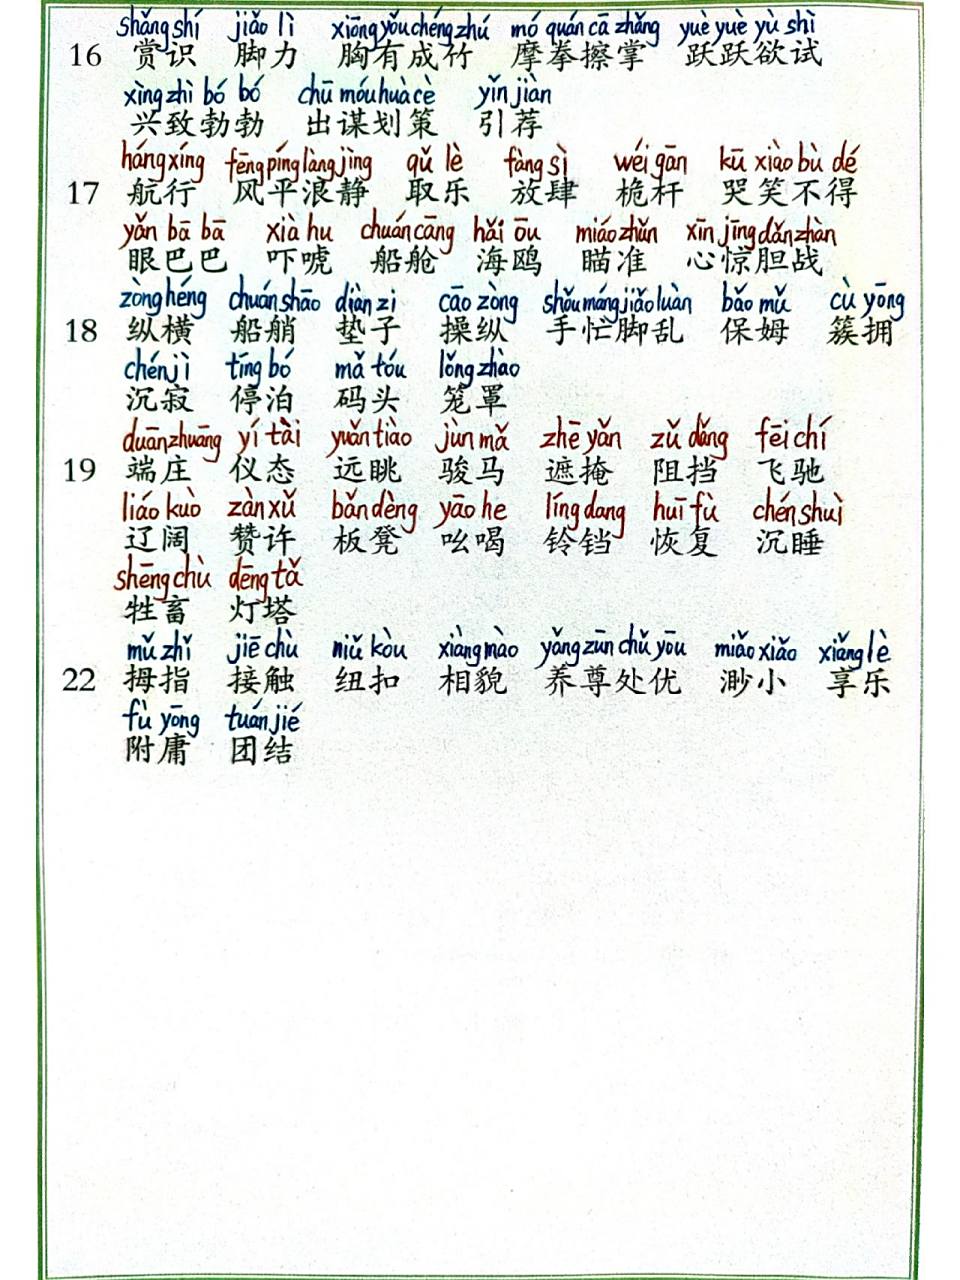 shǎng shí jiǎo lì xiōng yǒu chéng zhú mó quán cā zhǎng yuè yuè yù shì
16 赏识 脚力 胸有成竹 摩拳擦掌 跃跃欲试
xìng zhì bó bó chū móu huà cè yǐn jiàn
兴致勃勃 出谋划策 引荐
háng xíng fēng píng làng jìng qǔ lè fàng sì wéi gān kū xiào bù dé
17 航行 风平浪静 取乐 放肆 桅杆 哭笑不得
yǎn bā bā xià hu chuán cāng hǎi ōu miáo zhǔn xīn jīng dǎn zhàn
眼巴巴 吓唬 船舱 海鸥 瞄准 心惊胆战
zòng héng chuán shāo diàn zi cāo zòng shǒu máng jiǎo luàn bǎo mǔ cù yōng
18 纵横 船艄 垫子 操纵 手忙脚乱 保姆 簇拥
chén jì tíng bó mǎ tóu lǒng zhào
沉寂 停泊 码头 笼罩
duān zhuāng yí tài yuǎn tiào jùn mǎ zhē yǎn zǔ dǎng fēi chí
19 端庄 仪态 远眺 骏马 遮掩 阻挡 飞驰
liáo kuò zàn xǔ bǎn dèng yāo he líng dang huī fù chén shuì
辽阔 赞许 板凳 吆喝 铃铛 恢复 沉睡
shēng chù dēng tǎ
牲畜 灯塔
mǔ zhǐ jiē chù niǔ kòu xiàng mào yǎng zūn chǔ yōu miǎo xiǎo xiǎng lè
22 拇指 接触 纽扣 相貌 养尊处优 渺小 享乐
fù yōng tuán jié
附庸 团结